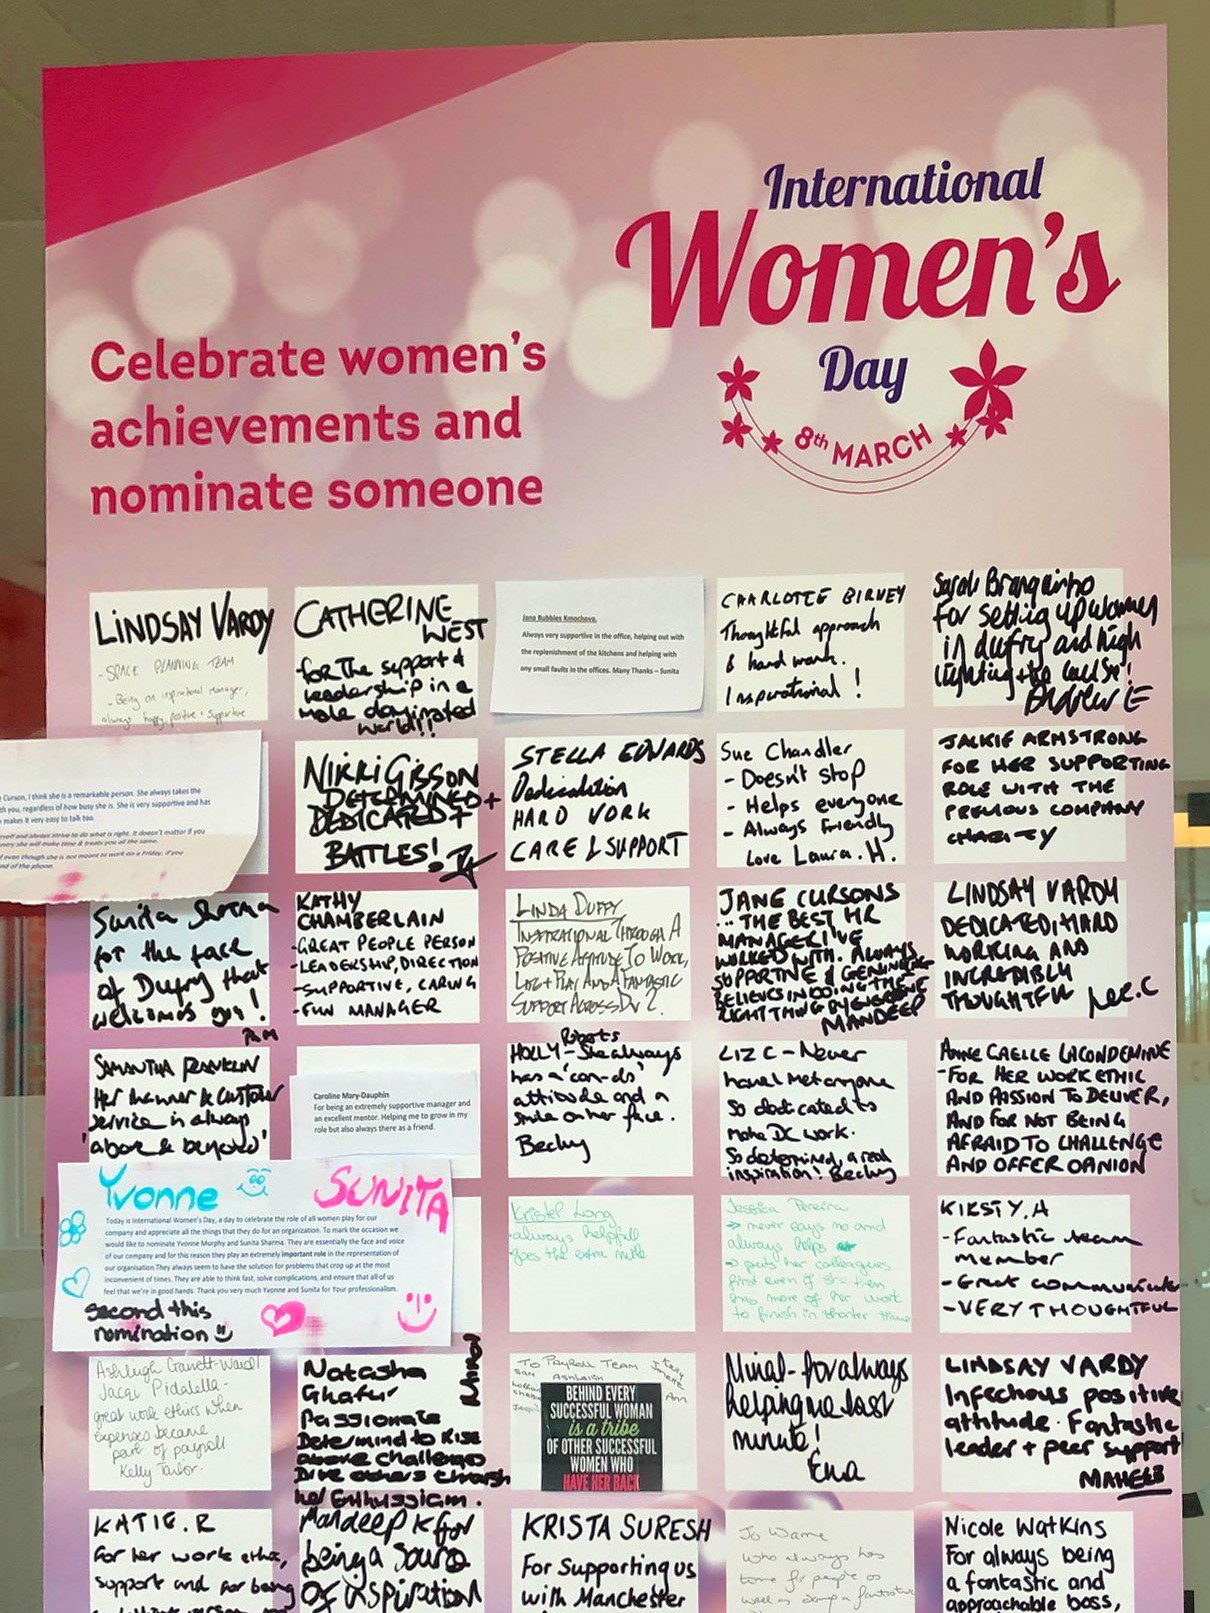 International
Women's
Day
8th MARCH
Celebrate women's
achievements and
nominate someone
LINDSAY VARDY
- SPACE PLANNING TEAM
- Being an inspirational manager,
always happy, positive + supportive
CATHERINE
WEST
for the support &
leadership in a
male dominated
world!!
Jana Bubbles Kmochova.
Always very supportive in the office, helping out with
the replenishment of the kitchens and helping with
any small faults in the offices. Many Thanks – Sunita
CHARLOTTE BIRNEY
Thoughtful approach
& hard work.
Inspirational !
Sarah Branquinho
For setting up women
in dufry and high
lighting the cause!
Andrew E
Curson, I think she is a remarkable person. She always takes the
th you, regardless of how busy she is. She is very supportive and has
makes it very easy to talk too.
rself and always strive to do what is right. It doesn't matter if you
sorry she will make time & treats you all the same.
f even though she is not meant to work on a Friday, if you
nd of the phone.
NIKKI GIBSON
DETERMINED +
DEDICATED +
BATTLES!
STELLA EDWARDS
Dedication
HARD WORK
CARE & SUPPORT
Sue Chandler
- Doesn't stop
- Helps everyone
- Always friendly
Love Laura. H.
JACKIE ARMSTRONG
FOR HER SUPPORTING
ROLE WITH THE
PREVIOUS COMPANY
CHARITY
Sunita Sharma
for the face
of Dufry that
welcomes you!
KATHY
CHAMBERLAIN
-GREAT PEOPLE PERSON
-LEADERSHIP, DIRECTION
-SUPPORTIVE, CARING
-FUN MANAGER
LINDA DUFFY
INSPIRATIONAL THROUGH A
POSITIVE ATTITUDE TO WORK,
LIFE + PLAY AND A FANTASTIC
SUPPORT ACROSS DIV 2.
JANE CURSONS
... THE BEST HR
MANAGER I'VE
WORKED WITH. ALWAYS
SUPPORTIVE & GENUINE
BELIEVES IN DOING THE
RIGHT THING BY EVERYONE
MANDEEP
LINDSAY VARDY
DEDICATED, HARD
WORKING AND
INCREDIBLY
THOUGHTFUL
SAMANTHA FRANKLIN
Her manner & customer
service is always
'above & beyond'
Caroline Mary-Dauphin
For being an extremely supportive manager and
an excellent mentor. Helping me to grow in my
role but also always there as a friend.
Roberts
HOLLY - She always
has a 'can-do'
attitude and a
smile on her face.
Becky
LIZ C - Never
have I met anyone
so dedicated to
make DC work.
So determined, a real
inspiration! Becky
ANNE GAELLE LACONDEMINE
- FOR HER WORK ETHIC
AND PASSION TO DELIVER,
AND FOR NOT BEING
AFRAID TO CHALLENGE
AND OFFER OPINION
Yvonne
SUNITA
Today is International Women's Day, a day to celebrate the role of all women play for our
company and appreciate all the things that they do for an organization. To mark the occasion we
would like to nominate Yvonne Murphy and Sunita Sharma. They are essentially the face and voice
of our company and for this reason they play an extremely important role in the representation of
our organisation.They always seem to have the solution for problems that crop up at the most
inconvenient of times. They are able to think fast, solve complications, and ensure that all of us
feel that we're in good hands. Thank you very much Yvonne and Sunita for Your professionalism.
second this
nomination
Kristel Long
always helpfull
goes the extra mile
Jessica Pereira
→ never says no and
always helps
→ puts her colleagues
first even if she then
has more of her work
to finish in shorter time
KIRSTY.A
-Fantastic team
member
-Great communicator
-VERY THOUGHTFUL
Ashleigh Garrett-Ward
Jacqi Pidalalla-
great work ethics when
expenses became
part of payroll
Kelly Tailor.
Natasha
Ghafur
Passionate
Determind to Rise
above challenges
Drive others through
her Enthussicam.
To Payroll Team
Ashleigh
Sam
Ann
BEHIND EVERY
SUCCESSFUL WOMAN
is a tribe
OF OTHER SUCCESSFUL
WOMEN WHO
HAVE HER BACK
Minal - for always
helping me last
minute!
Ena
LINDSAY VARDY
Infectious positive
attitude. Fantastic
leader + peer support
MAHEEB
KATIE.R
For her work ethic,
support and for being
Mandeep K for
being a source
of inspiration
KRISTA SURESH
For Supporting us
with Manchester
Jo Warne
who always has
time for people as
well as being a fantastic
Nicole Watkins
For always being
a fantastic and
approachable boss,